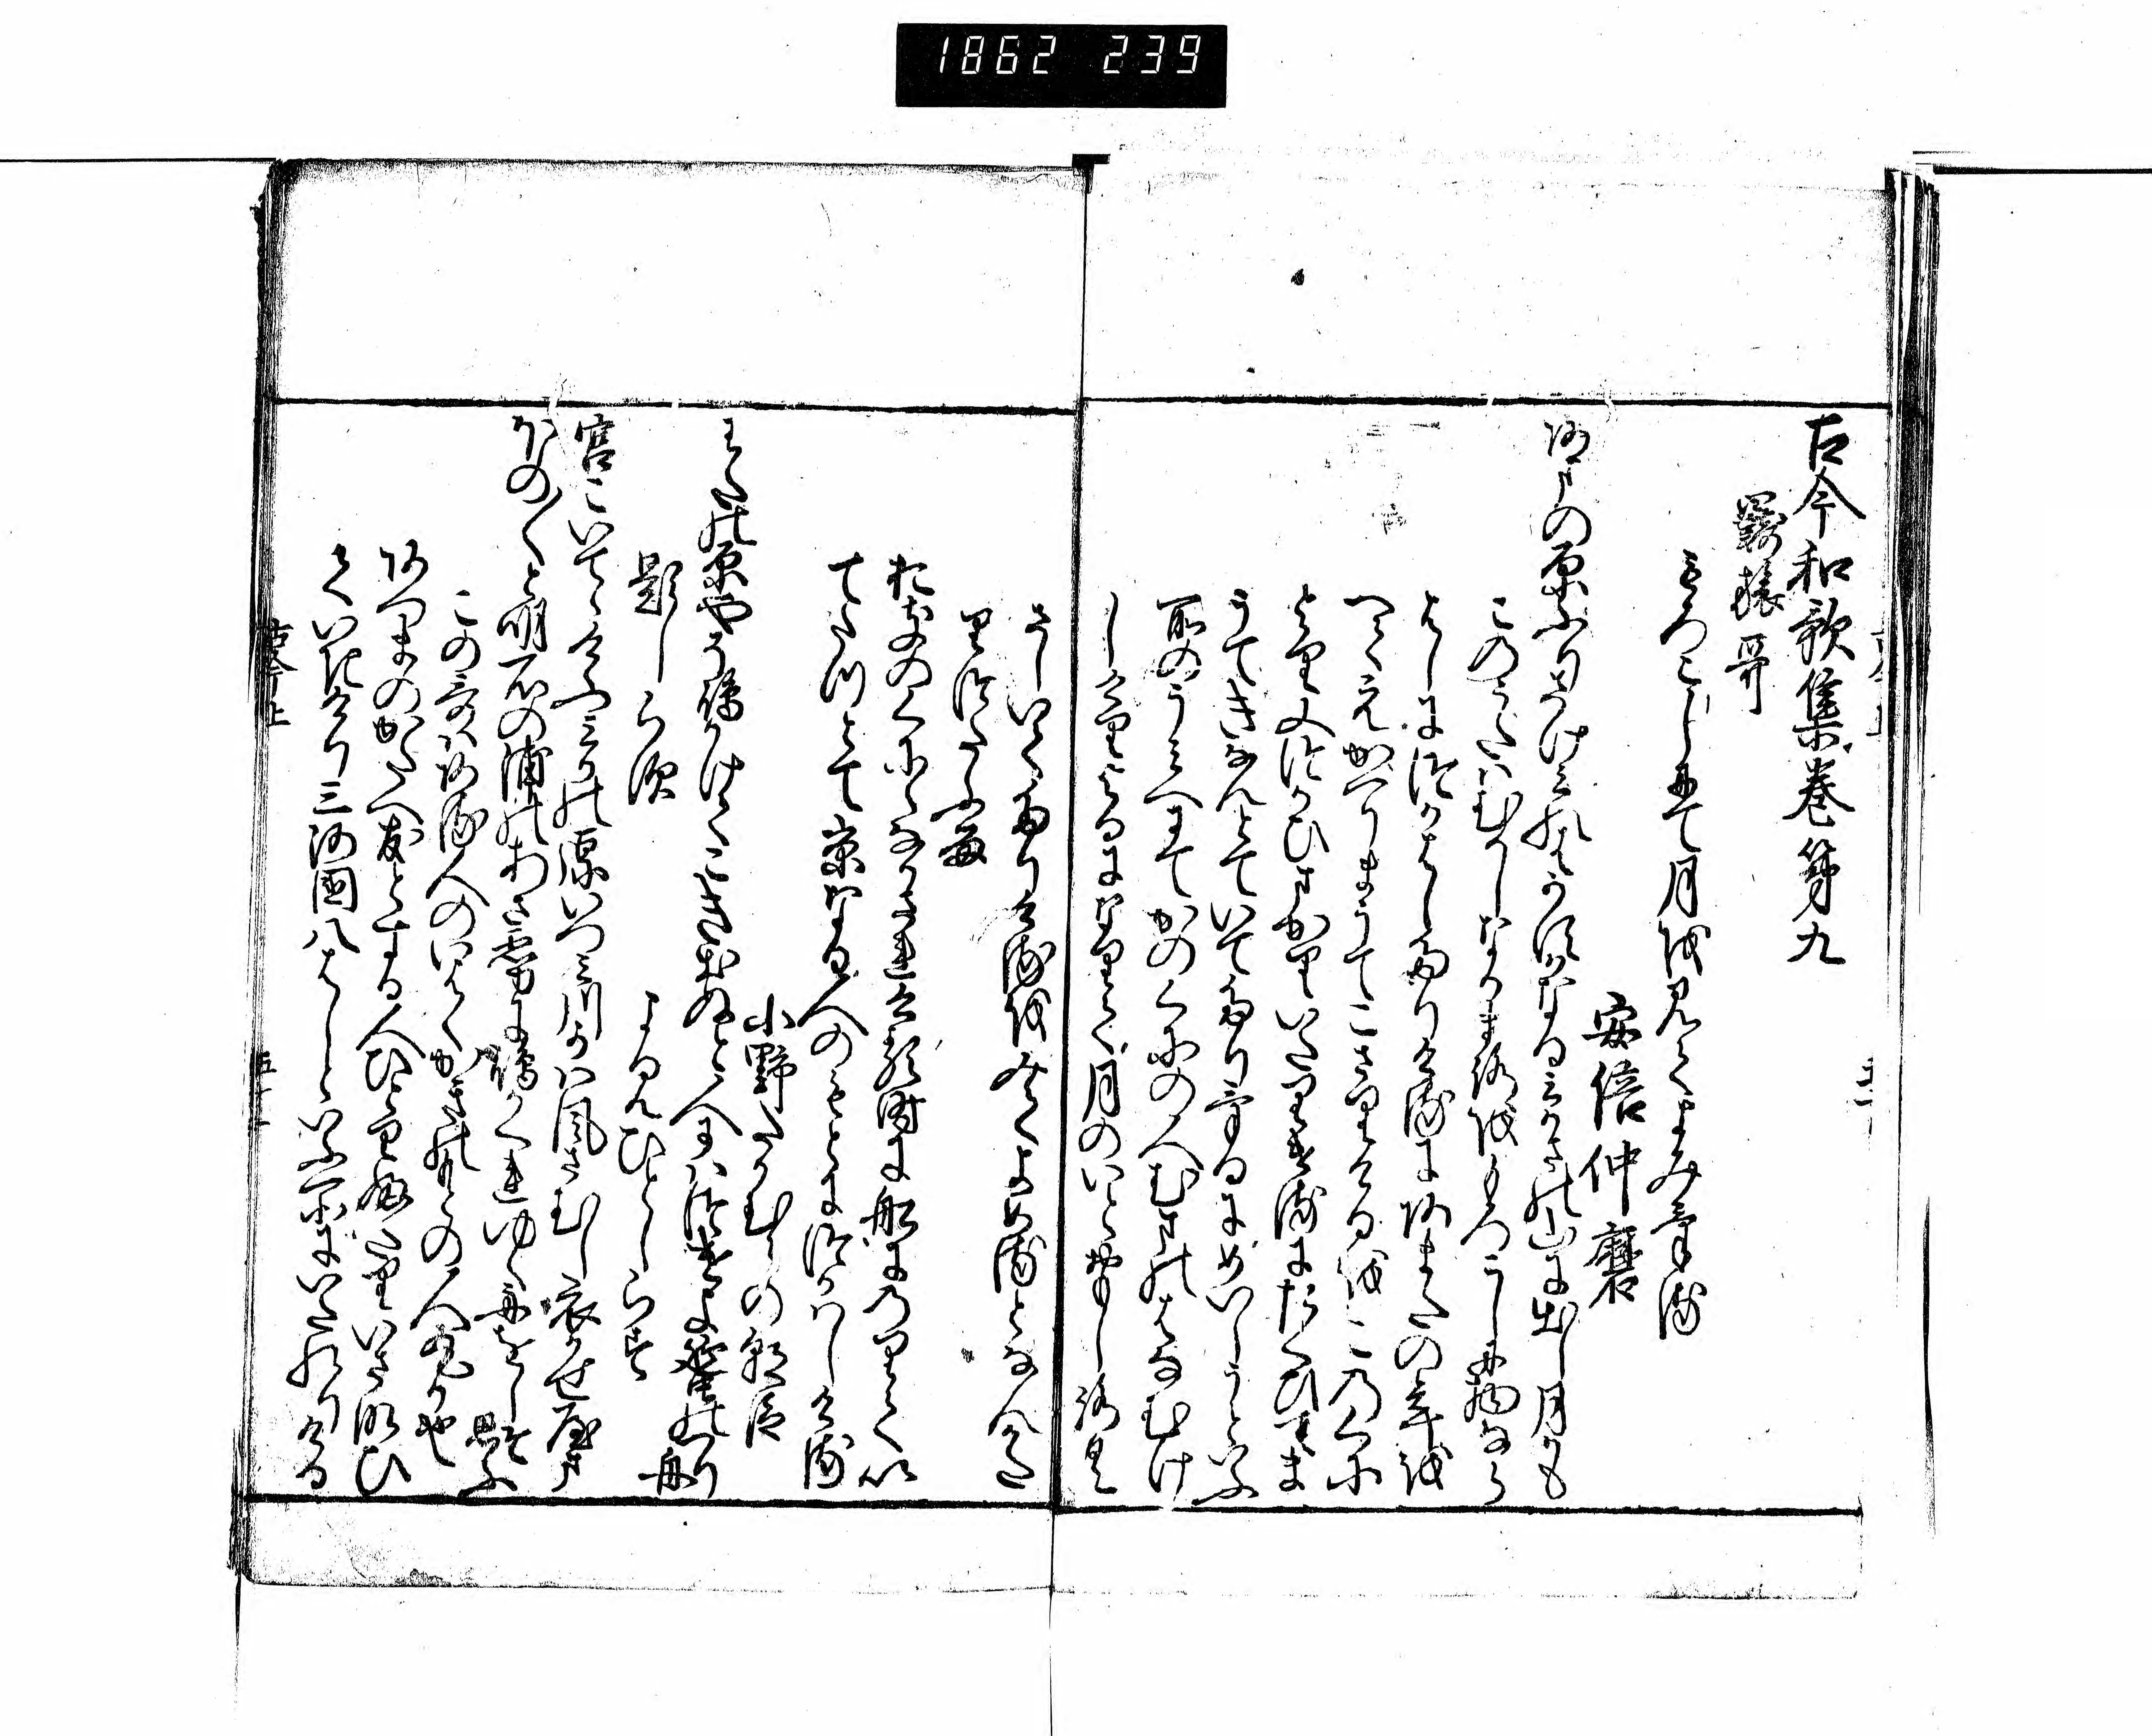 1862 239
古今和歌集巻第九
羈旅哥
もろこしにて月を見てよみける
安倍仲麿
あまの原ふりさけみれはかすかなるみかさの山に出し月かも
このうたはむかしなかまろをもろこしに物なら
はしにつかはしたりけるにあまたの年を
へてえかへりまうてこさりけるをこのくに
より又つかひまかりいたりけるにたくひてま
うてきなんとていてたりけるにめいしうといふ
所のうみへにてかのくにの人むまのはなむけ
しけりよるになりて月のいとおもしろく
さしいてたりけるをみてよめるとなんかた
りつたふる
おきのくにになかされける時に船にのりてい
てたつとて京なる人のもとにつかはしける
小野たかむらの朝臣
わたの原やそ嶋かけてこき出ぬと人にはつけよ蜑のつり舟
題しらす よみ人しらす
宮こいてゝけふみかの原いつみ川かは風さむし衣かせ山
ほの〱と明石の浦のあさ霧に嶋かくれゆく舟をしそ思ふ
この哥ある人のいはくかきのもとの人丸か也
あつまのかたへ友とする人ひとりふたりいさなひ
ていきけり三河国八はしといふ所にいたれりける
古今上